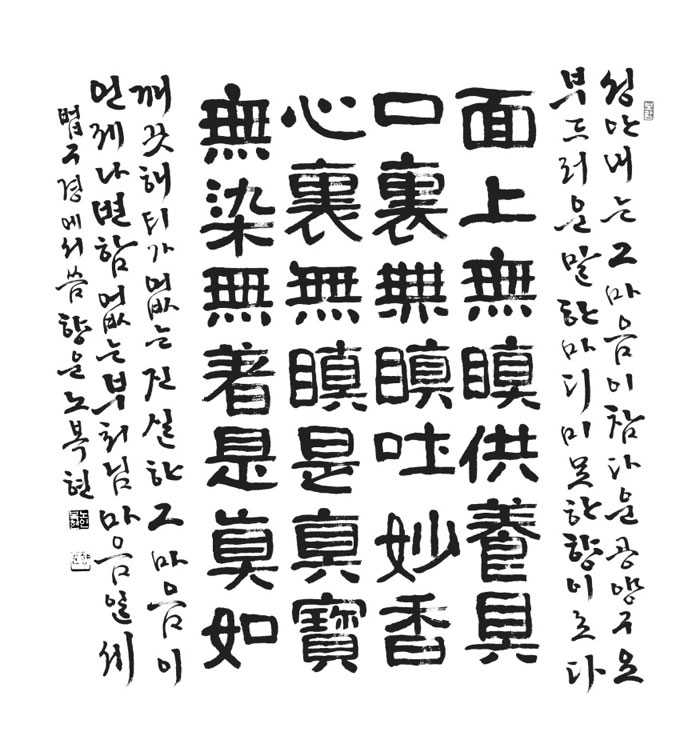 성 안 내는 그 마음이 참다운 공양구요
부드러운 말 한마디 미묘한 향이로다
面上無瞋供養具
口裏無瞋吐妙香
心裏無瞋是眞寶
無染無著是眞如
깨끗해 티가 없는 진실한 그 마음이
언제나 변함없는 부처님 마음일세
법구경에서 씀 향운 노복현